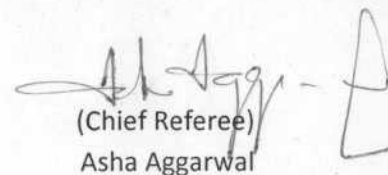 (Chief Referee)
Asha Aggarwal